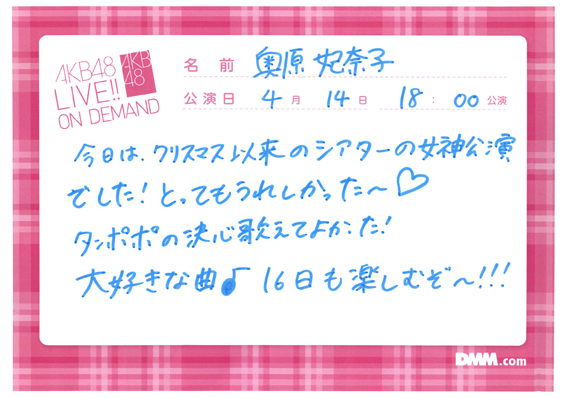 AKB48
LIVE!!
ON DEMAND
AKB
48
名前 奥原 妃奈子
公演日 4月 14日 18:00 公演
今日は、クリスマス以来のシアターの女神公演
でした!とってもうれしかった〜♡
タンポポの決心歌えてよかった!
大好きな曲♪ 16日も楽しむぞ〜!!!
DMM.com